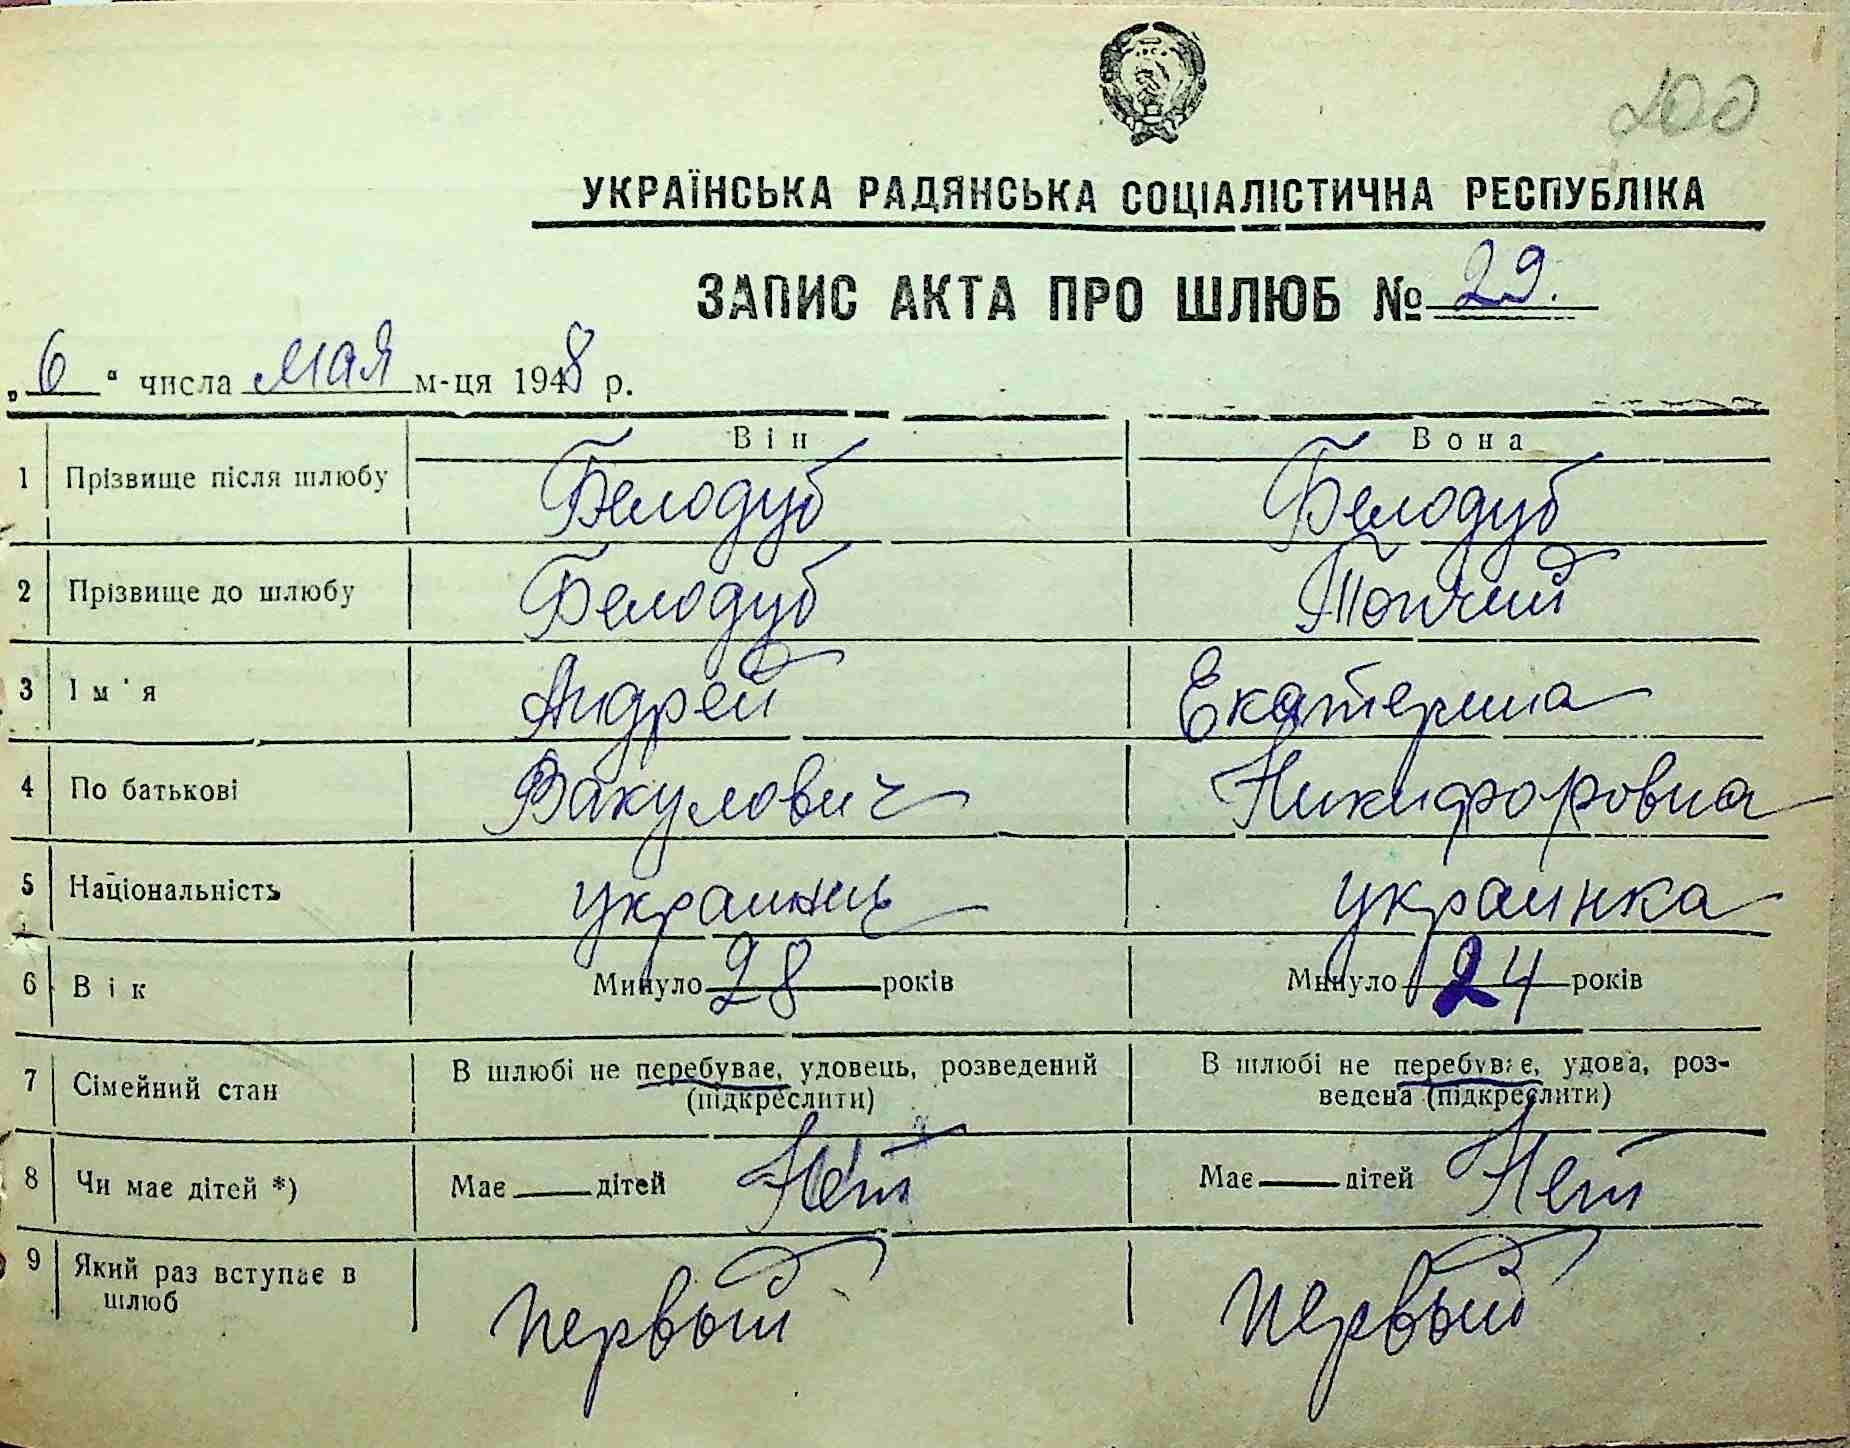 200
УКРАЇНСЬКА РАДЯНСЬКА СОЦІАЛІСТИЧНА РЕСПУБЛІКА
ЗАПИС АКТА ПРО ШЛЮБ № 29.
„6“ числа мая м-ця 1948 р.
Він Вона
1 Прізвище після шлюбу Белодуб Белодуб
2 Прізвище до шлюбу Белодуб Топчий
3 Ім'я Андрей Екатерина
4 По батькові Вакулович Никифоровна
5 Національність украинец украинка
6 Вік Минуло 28 років Минуло 24 років
7 Сімейний стан В шлюбі не перебуває, удовець, розведений (підкреслити) В шлюбі не перебуває, удова, роз-
ведена (підкреслити)
8 Чи має дітей *) Має — дітей Нет Має — дітей Нет
9 Який раз вступає в
шлюб первый первый